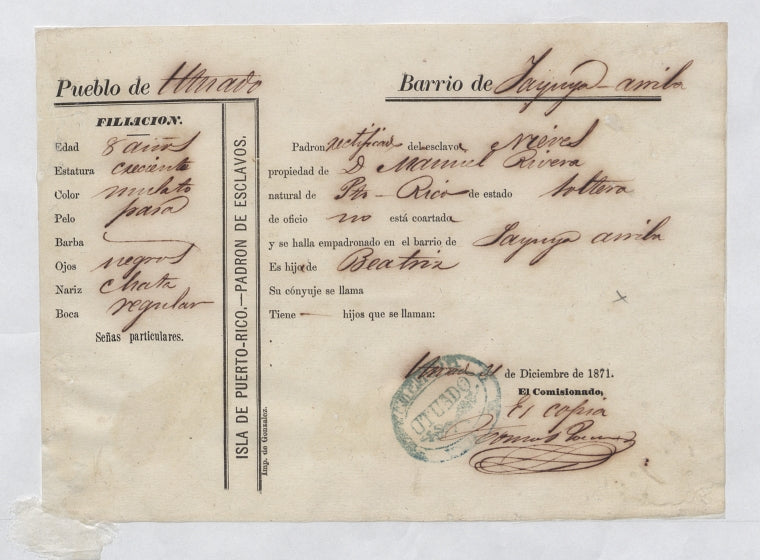 Pueblo de Utuado
Barrio de Jayuya-arriba
FILIACION.
Edad 8 años
Estatura creciente
Color mulato
Pelo pasa
Barba
Ojos negros
Nariz chata
Boca regular
Señas particulares.
ISLA DE PUERTO-RICO.—PADRON DE ESCLAVOS.
Imp. de Gonzalez.
Padron rectificado del esclava Nieves
propiedad de D. Manuel Rivera
natural de Pto-Rico de estado soltera
de oficio no está coartada
y se halla empadronado en el barrio de Jayuya arriba
Es hija de Beatriz
Su cónyuje se llama
Tiene — hijos que se llaman:
Utuado de Diciembre de 1871.
El Comisionado,
Es copia
UTUADO